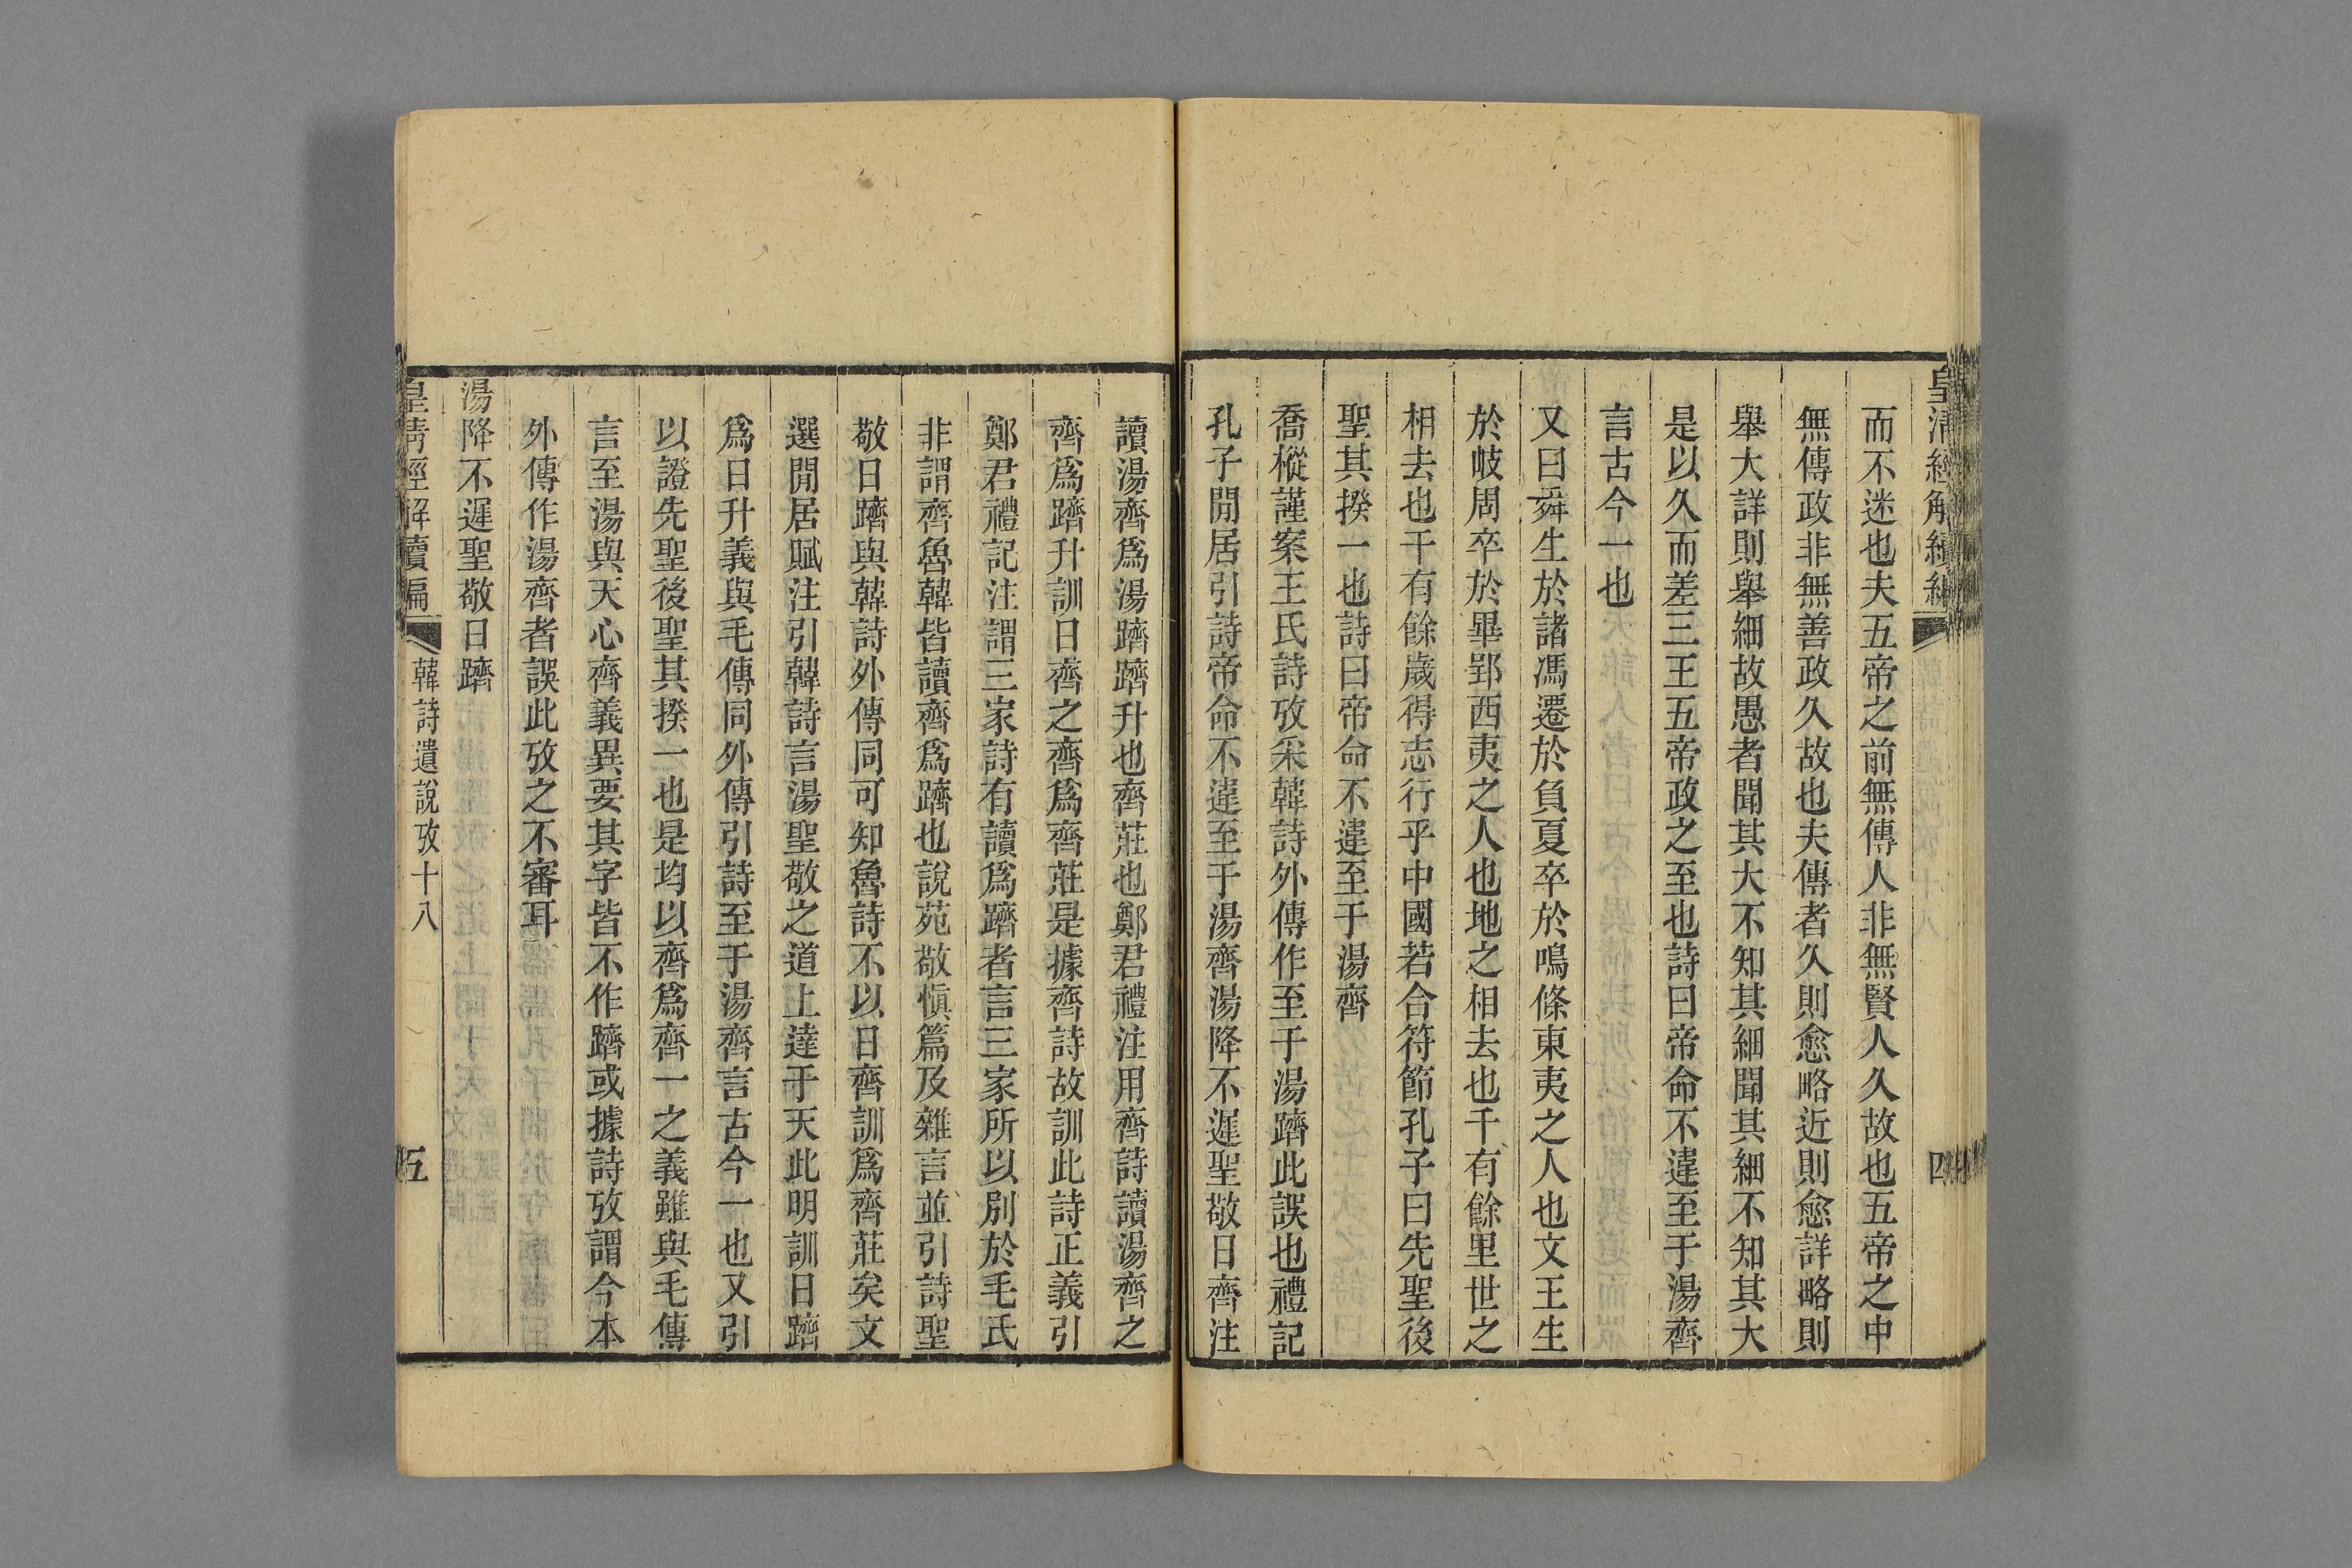 皇清經解續編
四
而不迷也夫五帝之前無傳人非無賢人久故也五帝之中
無傳政非無善政久故也夫傳者久則愈略近則愈詳略則
舉大詳則舉細故愚者聞其大不知其細聞其細不知其大
是以久而差三王五帝政之至也詩曰帝命不違至于湯齊
言古今一也
又曰舜生於諸馮遷於負夏卒於鳴條東夷之人也文王生
於岐周卒於畢郢西夷之人也地之相去也千有餘里世之
相去也千有餘歲得志行乎中國若合符節孔子曰先聖後
聖其揆一也詩曰帝命不違至于湯齊
喬樅謹案王氏詩攷采韓詩外傳作至于湯躋此誤也禮記
孔子閒居引詩帝命不違至于湯齊湯降不遲聖敬日齊注
讀湯齊爲湯躋躋升也齊莊也鄭君禮注用齊詩讀湯齊之
齊爲躋升訓日齊之齊爲齊莊是據齊詩故訓此詩正義引
鄭君禮記注謂三家詩有讀爲躋者言三家所以別於毛氏
非謂齊魯韓皆讀齊爲躋也說苑敬愼篇及雜言並引詩聖
敬日躋與韓詩外傳同可知魯詩不以日齊訓爲齊莊矣文
選閒居賦注引韓詩言湯聖敬之道上達于天此明訓日躋
爲日升義與毛傳同外傳引詩至于湯齊言古今一也又引
以證先聖後聖其揆一也是均以齊爲齊一之義雖與毛傳
言至湯與天心齊義異要其字皆不作躋或據詩攷謂今本
外傳作湯齊者誤此攷之不審耳
湯降不遲聖敬日躋
皇清經解續編
韓詩遺說攷十八
五